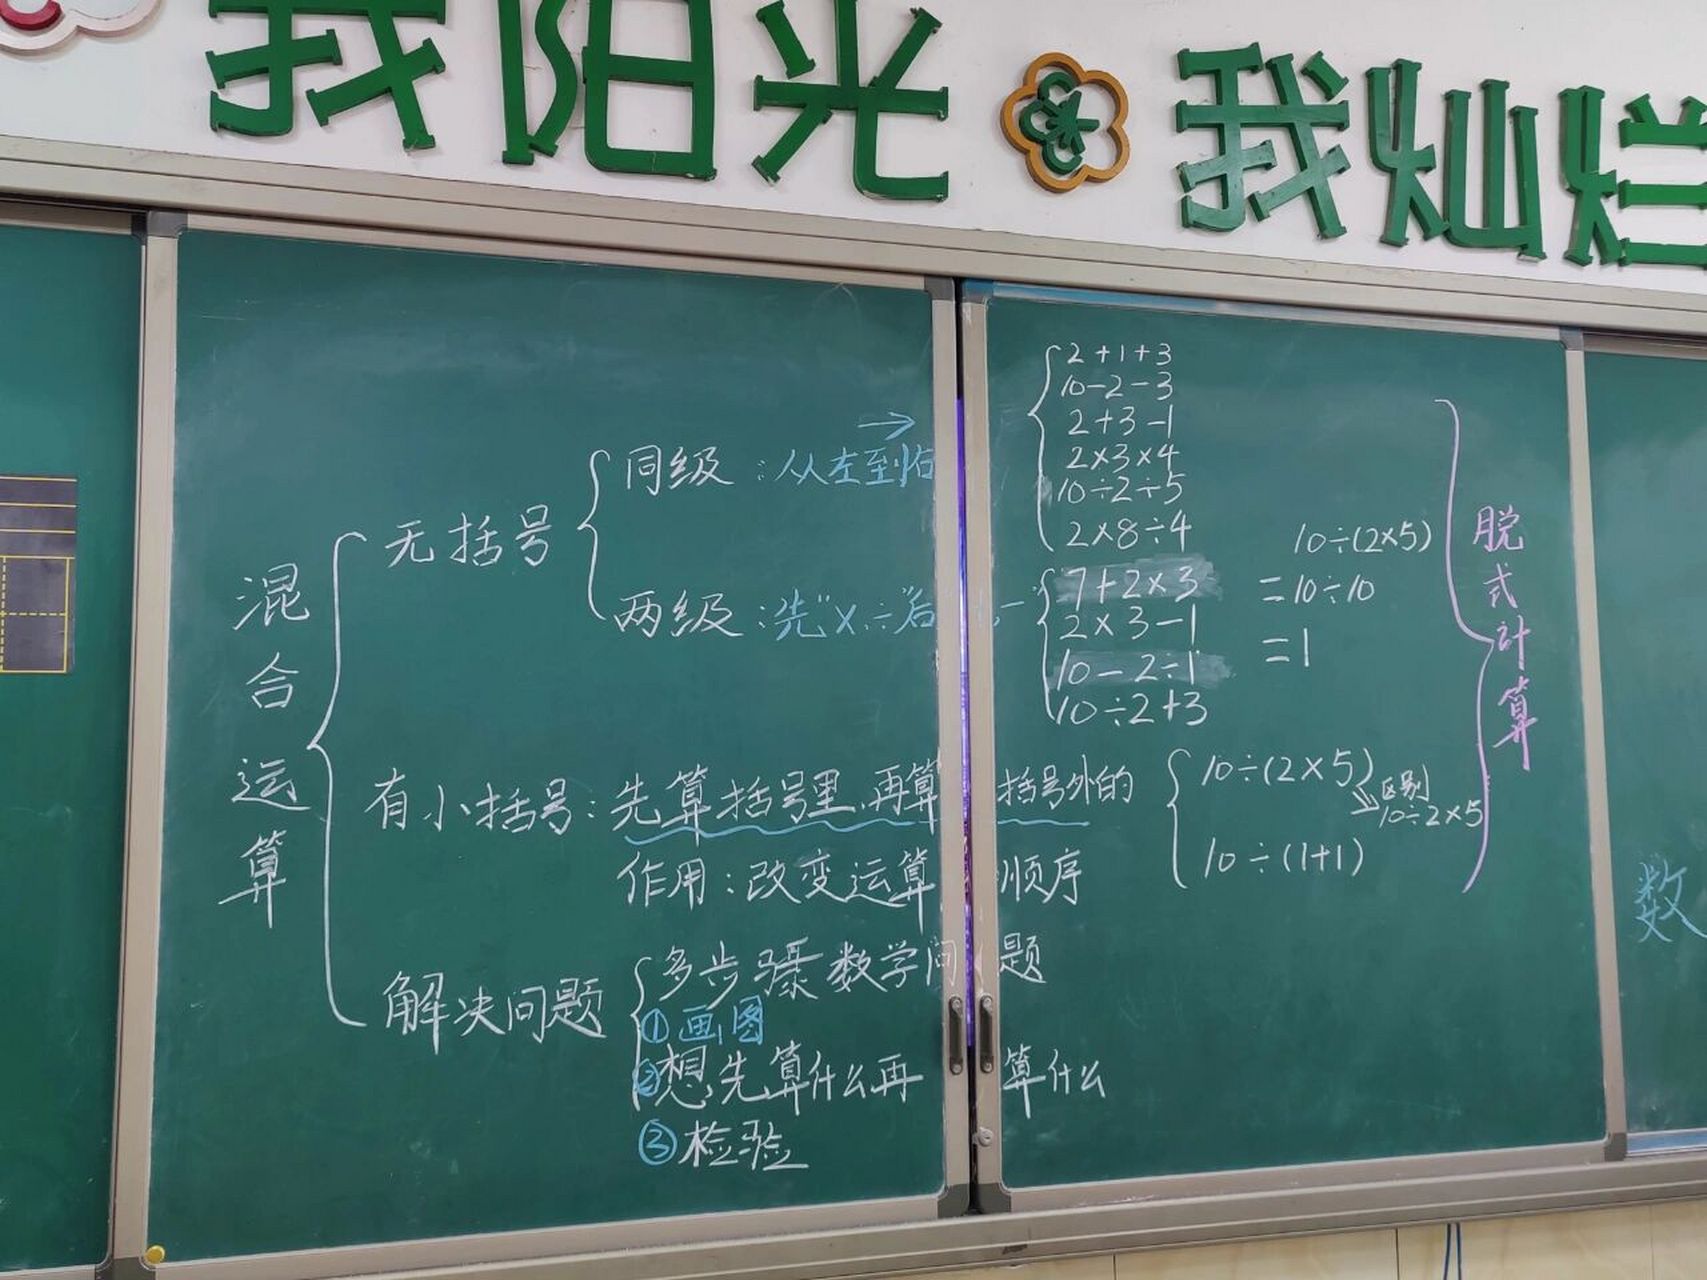 我阳光 我灿烂
混合运算
无括号
同级：从左到右
两级：先"×÷"后
2+1+3
10-2-3
2+3-1
2×3×4
10÷2÷5
2×8÷4
7+2×3
2×3-1
10-2÷1
10÷2+3
10÷(2×5)
=10÷10
=1
脱式计算
有小括号：先算括号里，再算括号外的
作用：改变运算顺序
10÷(2×5)
区别
10÷2×5
10÷(1+1)
解决问题
多步骤数学问题
①画图
②想先算什么再算什么
③检验
数